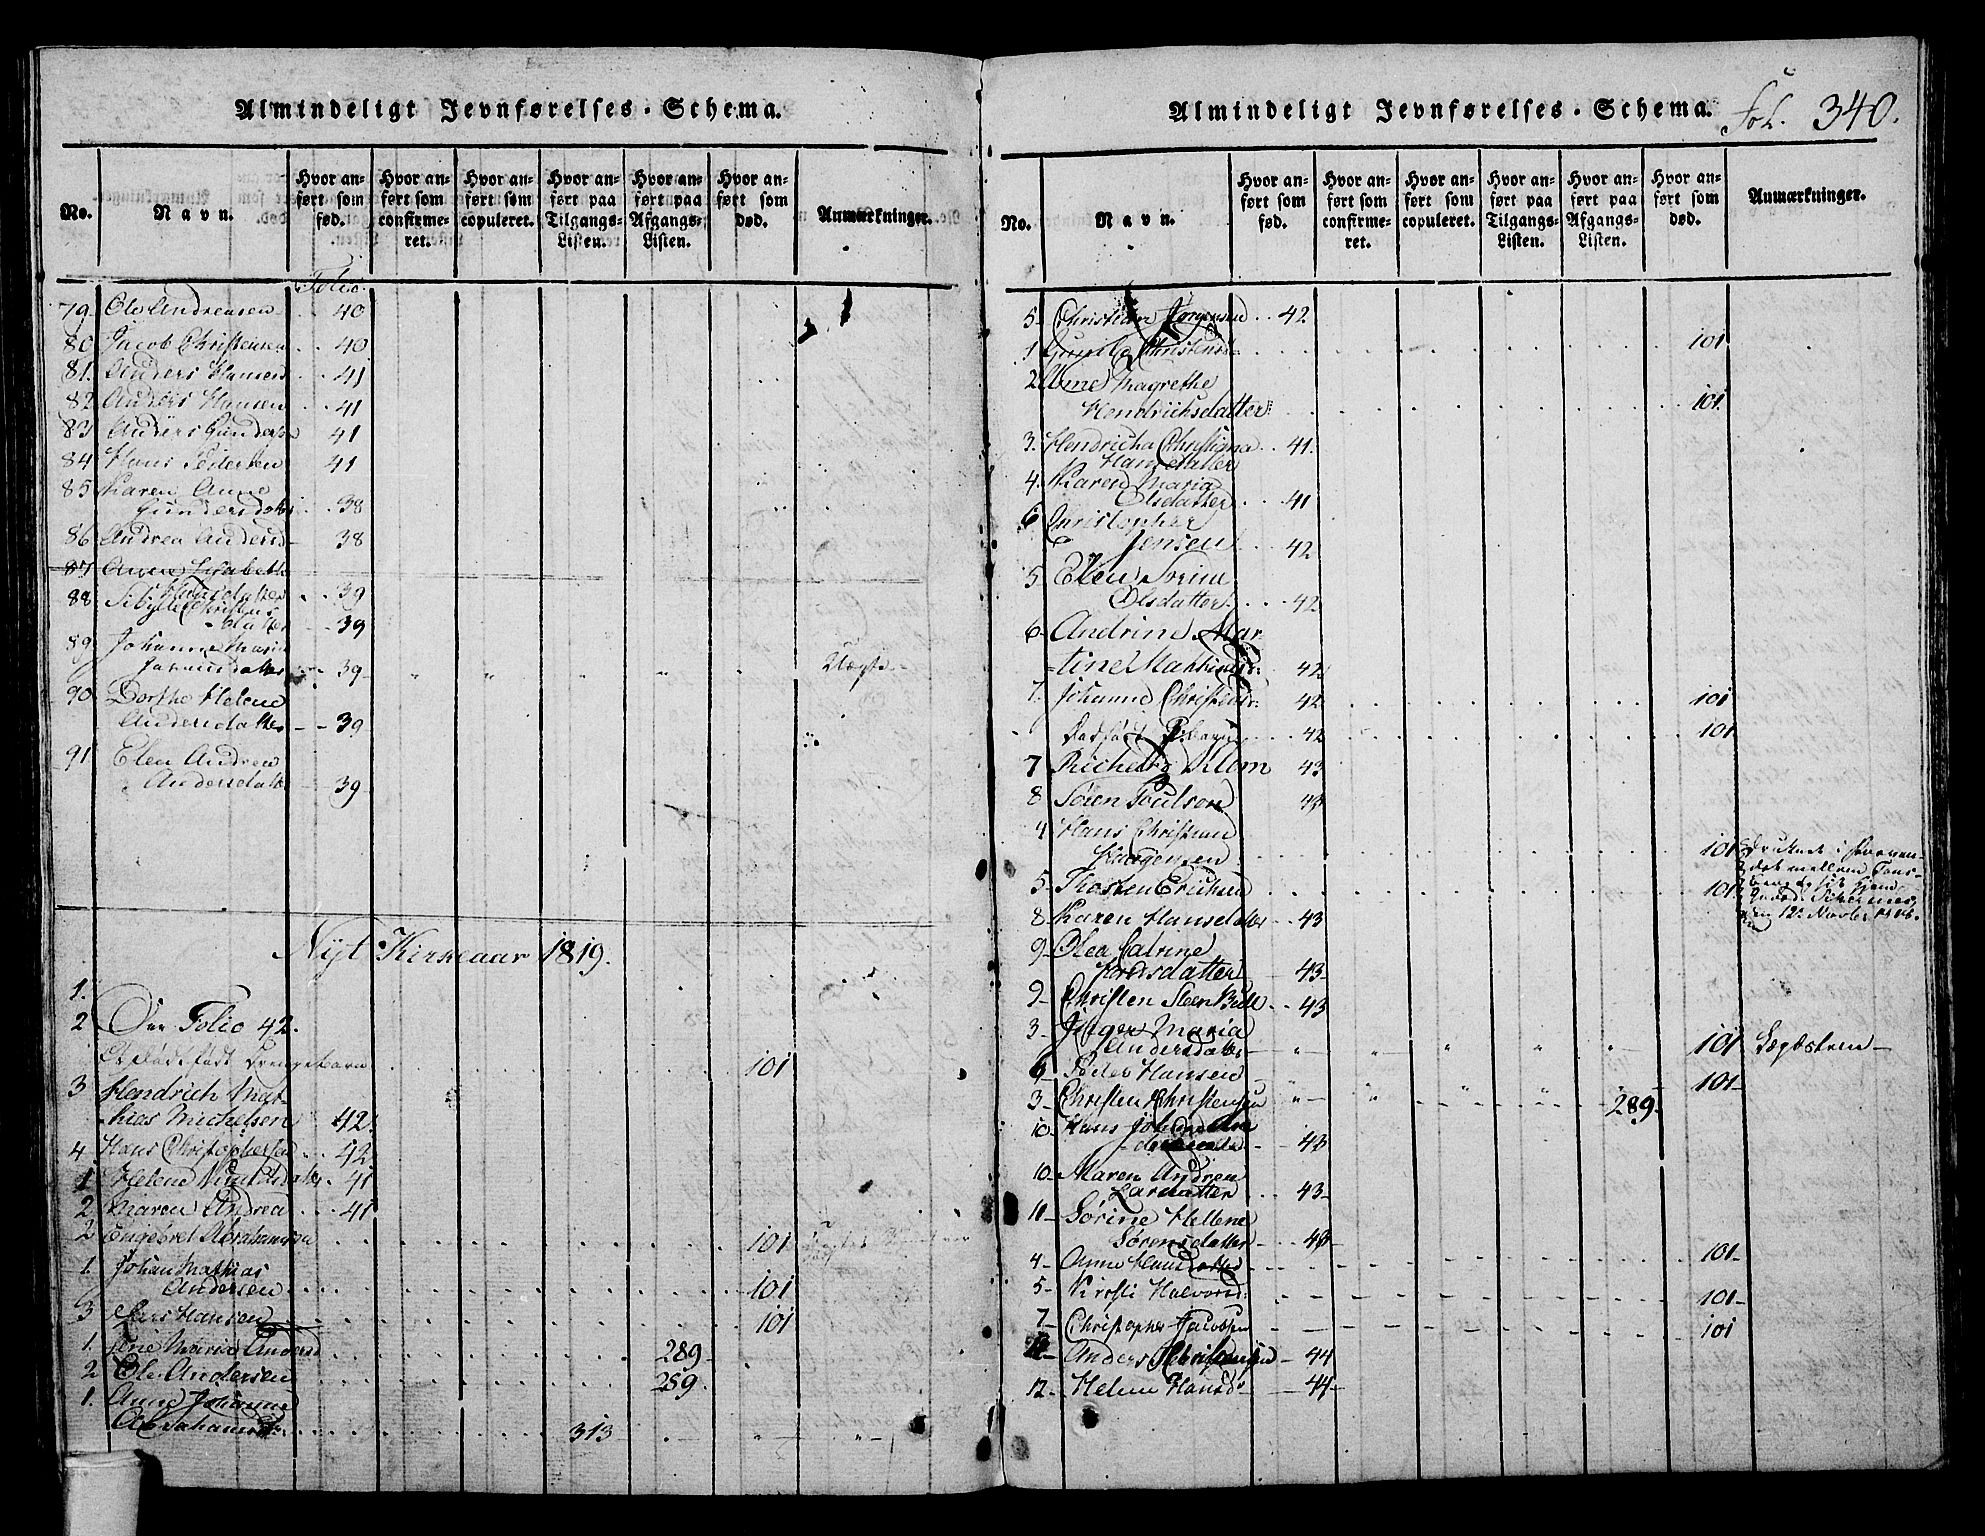 Almindeligt Jevnførelses-Schema.
No.
Navn.
Hvor anført som fød.
Hvor anført som confirmeret.
Hvor anført som copuleret.
Hvor anført paa Tilgangs-Listen.
Hvor anført paa Afgangs-Listen.
Hvor anført som død.
Anmærkninger.
Folio.
79. Ole Andreasen 40
80 Jacob Christensen 40
81. Anders Hansen 41
82 Anders Hansen 41
83 Anders Gunders 41
84 Hans Pedersen 41
85 Karen Anne
Gundersdatter 38
86 Andrea Andersd 38
87 Anne Lisabeth
Hansdatter 39
88 Sibylle Christens
datter 39
89 Johanne Maria
39 Uægte
90 Dorthe Helene
Andersdatter 39
91 Elen Andrea
Andersdatter 39
Nyt Kirkeaar 1819.
1.
2 See Folio 42.
Et dødfødt Drengebarn 101
3 Hendrich Mat-
hias Michelsen 42
4. Hans Christophersen 42
1 Helene 41
2 Maren Andrea 41
2 Engebret Abrahamsen 101
1. Johan Mathias
Andersen 101
3 Lars Hansen 101
1. Maria Andersd 289
2 Ole Andersen 289.
1. Anne Johanne
Abrahamsd 313
Almindeligt Jevnførelses-Schema. Fol. 340.
No.
Navn.
Hvor anført som fød.
Hvor anført som confirmeret.
Hvor anført som copuleret.
Hvor anført paa Tilgangs-Listen.
Hvor anført paa Afgangs-Listen.
Hvor anført som død.
Anmærkninger.
5 Christian Jørgensen 42
1 Christensd 101
2 Anne Magrethe
Hendrichsdatter 101.
3. Hendricha Christina
Hansdatter 41.
4. Karen Maria
Olsdatter 41
6 Christopher
Jensen 42
5 Elen Sorine
Olsdatter 42
6 Andrine Mar-
tine Mathiasd: 42
7. Johanne Christensd: 42 101
Dødfødt 42 101
7 Richard Klem 43
8 Søren Poulsen 43
4 Hans Christian
Jørgensen 101
5 Thosten Erichsen 101
8 Karen Hansdatter 43
9 Olea Catrine
datter 43
9 Christen Steen Bill 43
3 Inger Maria
Andersdatter 101 Lægdslem
Peder Hansen 101
3 Christen Christensen 289.
10 Hans Johan An
43
10 Maren Andrea
Larsdatter 43
11 Sørine Hellene
Sørensdatter 43
4 Anne Hansdatter 101
5 Kirsti Halvorsd: 101
7 Christopher Jacobsen 101
Anders Christensen 44
12 Helene Hansd 44